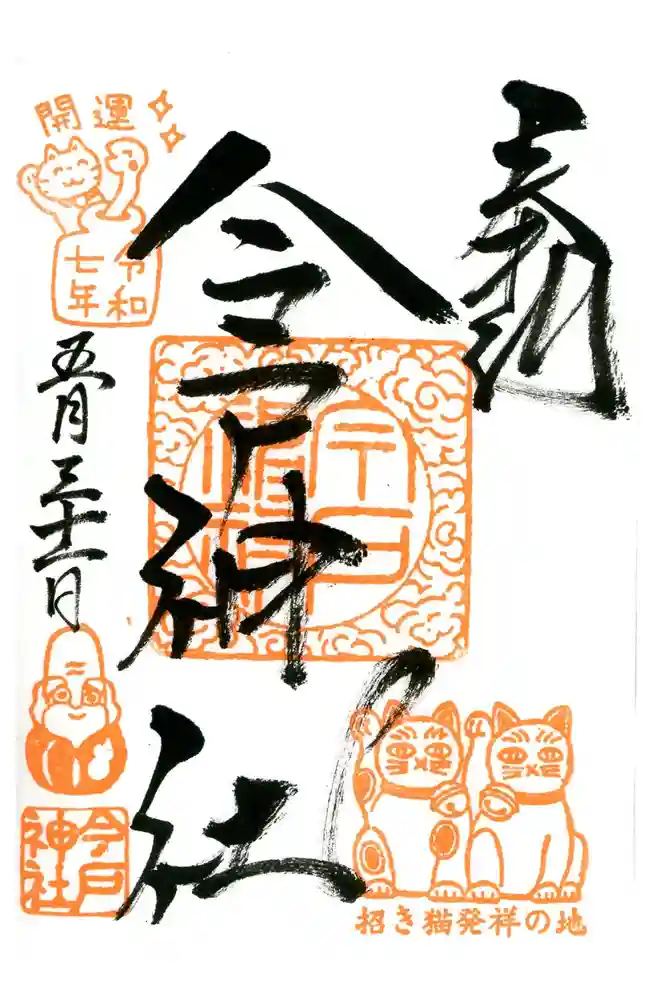 奉拝
今戸神社
今戸神社
開運
令和
七年
五月三十一日
今戸
神社
招き猫発祥の地